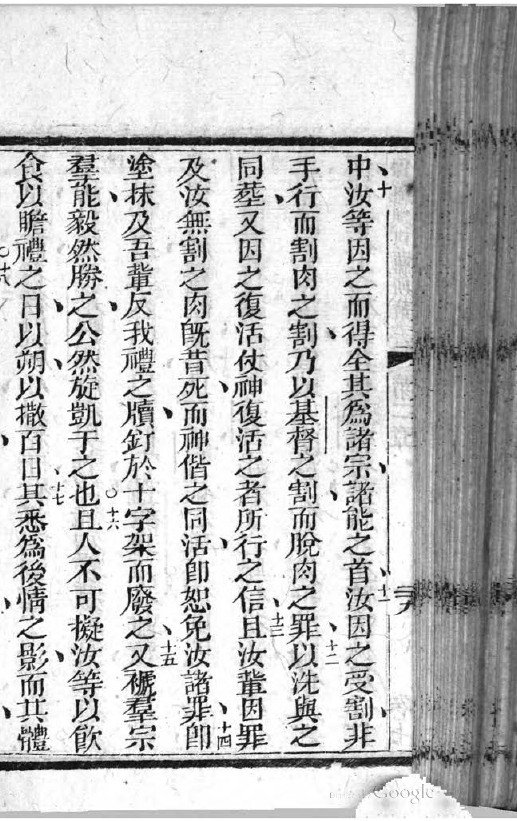 中十汝等因之而得全其爲諸宗諸能之首十一汝因之受割非
手行而割肉之割乃以基督之割而脫肉之罪十二以洗與之
同塟又因之復活仗神復活之者所行之信十三且汝輩因罪
及汝無割之肉旣昔死而神偕之同活卽恕免汝諸罪十四卽
塗抹及吾輩反我禮之牘釘於十字架而廢之十五又褫羣宗
羣能毅然勝之公然旋凱于之也○十六且人不可擬汝等以飮
食以瞻禮之日以朔以撒百日十七其悉爲後情之影而其體
○十八
Google